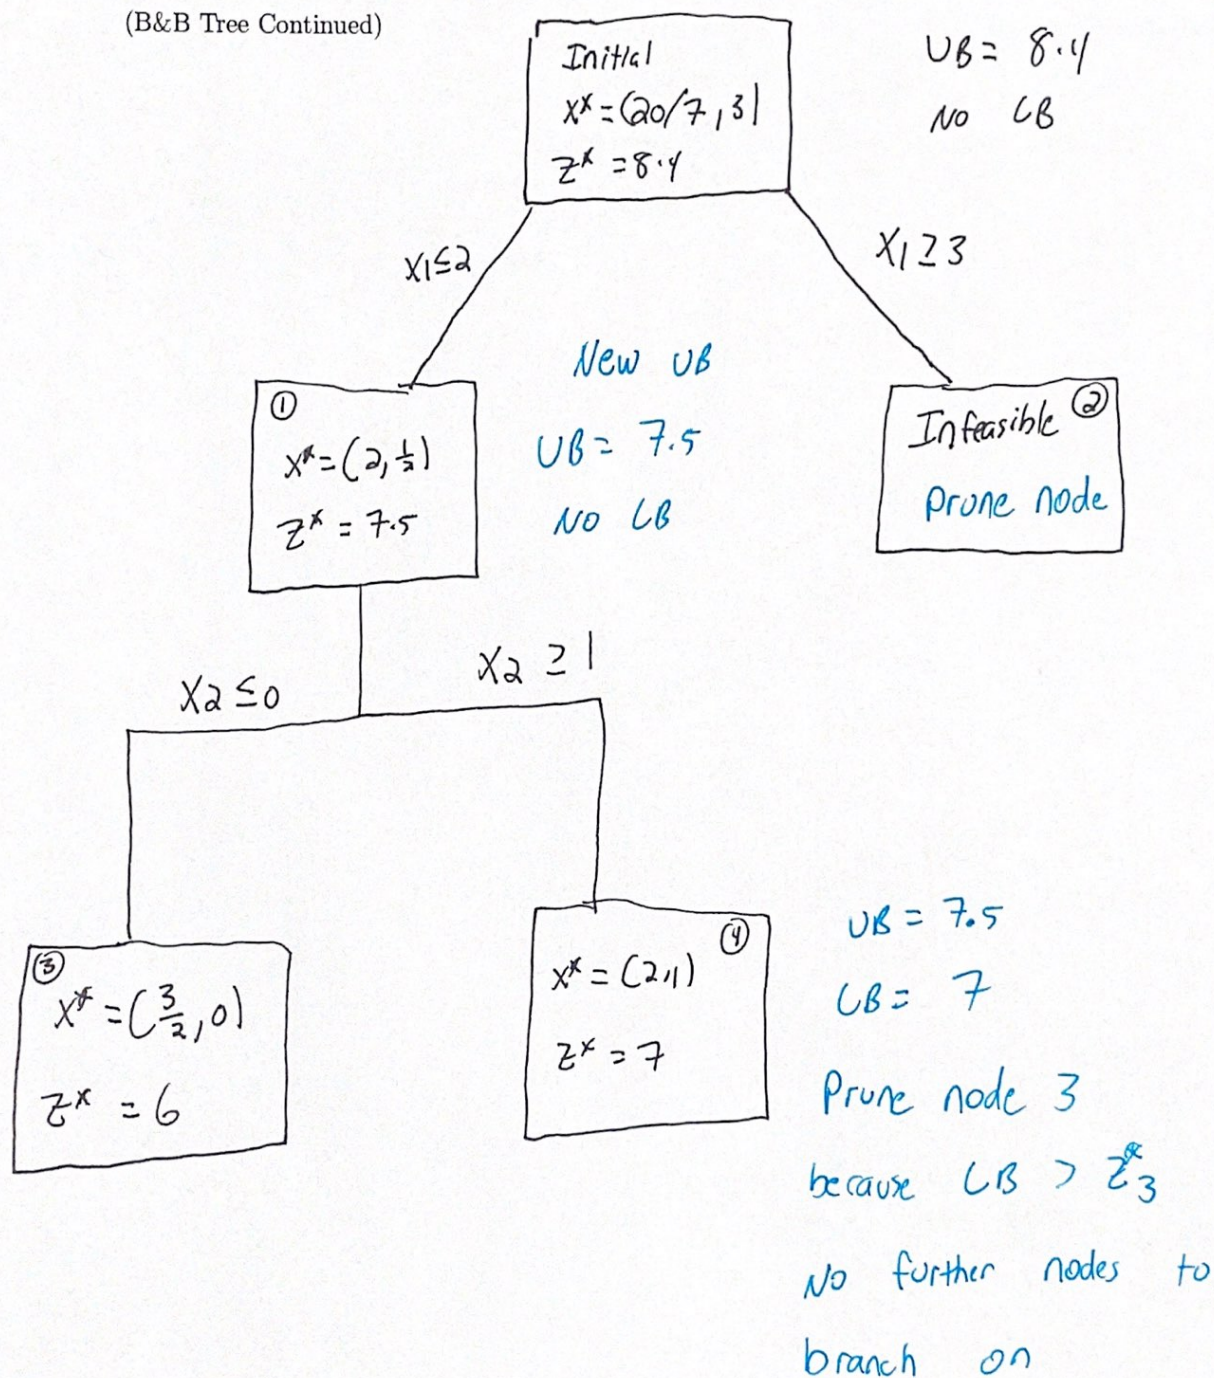 (B&B Tree Continued)
Initial
X* = (20/7, 3)
Z* = 8.4
UB = 8.4
NO LB
X1 ≤ 2
X1 ≥ 3
①
X* = (2, 1/2)
Z* = 7.5
New UB
UB = 7.5
NO LB
②
Infeasible
Prune node
X2 ≤ 0
X2 ≥ 1
③
X* = (3/2, 0)
Z* = 6
④
X* = (2,1)
Z* = 7
UB = 7.5
LB = 7
Prune node 3
because LB > Z*3
No further nodes to
branch on